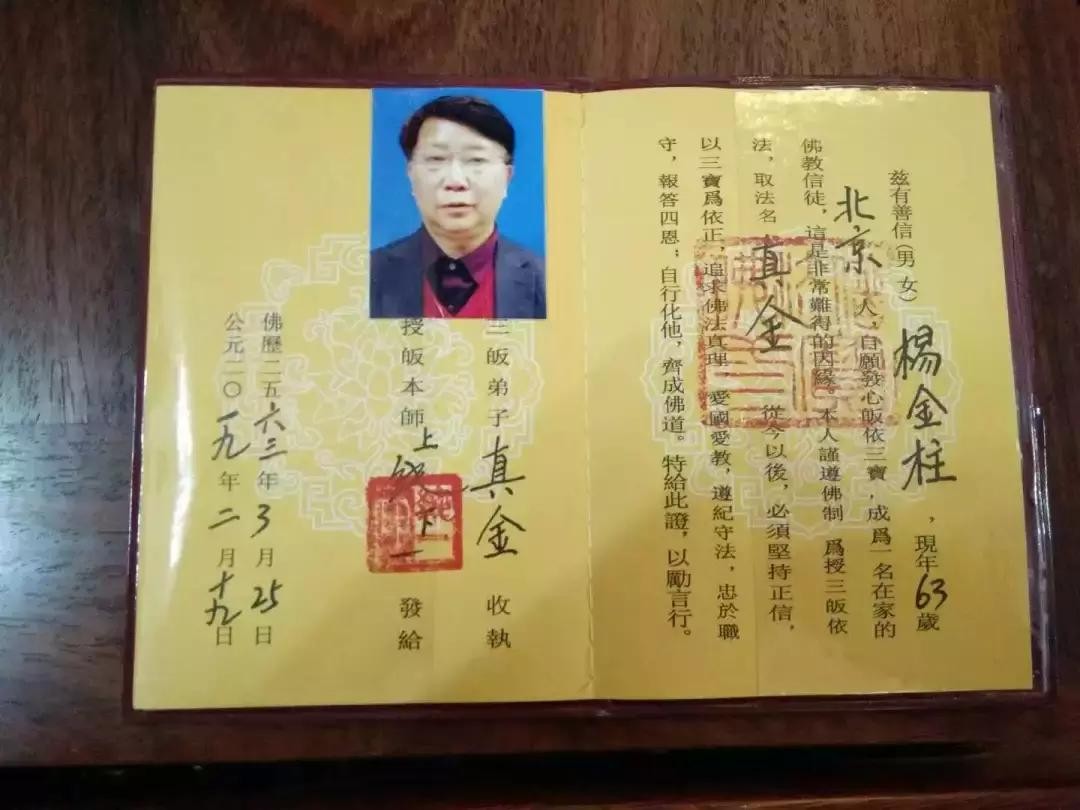 兹有善信(男 女) 楊金柱，現年63歲
北京人，自願發心皈依三寶，成爲一名在家的
佛教信徒，這是非常難得的因緣。本人謹遵佛制 爲授三皈依
法，取法名 真金 從今以後，必須堅持正信，
以三寶爲依正，追求佛法真理，愛國愛教，遵紀守法，忠於職
守，報答四恩；自行化他，齊成佛道。特給此證，以勵言行。
三皈弟子 真金 收執
授皈本師 上 下一 發給
佛歷二五六三年3月25日
公元二〇一九年二月十九日